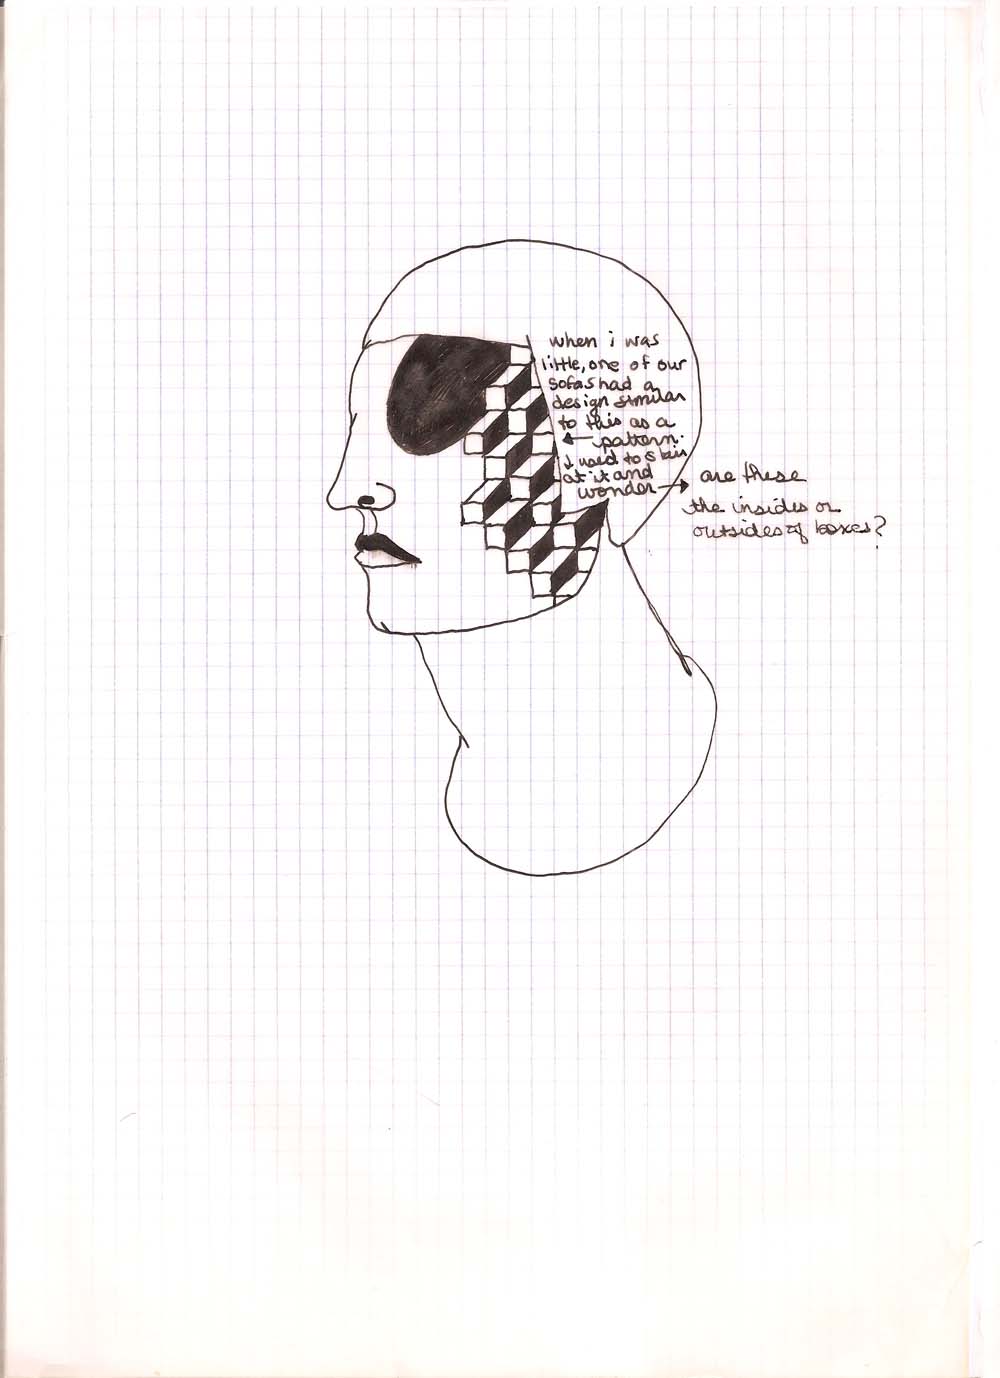 when i was
little, one of our
sofas had a
design similar
to this as a
← pattern.
I used to
at it and
wonder → are these
the insides or
outsides of boxes?